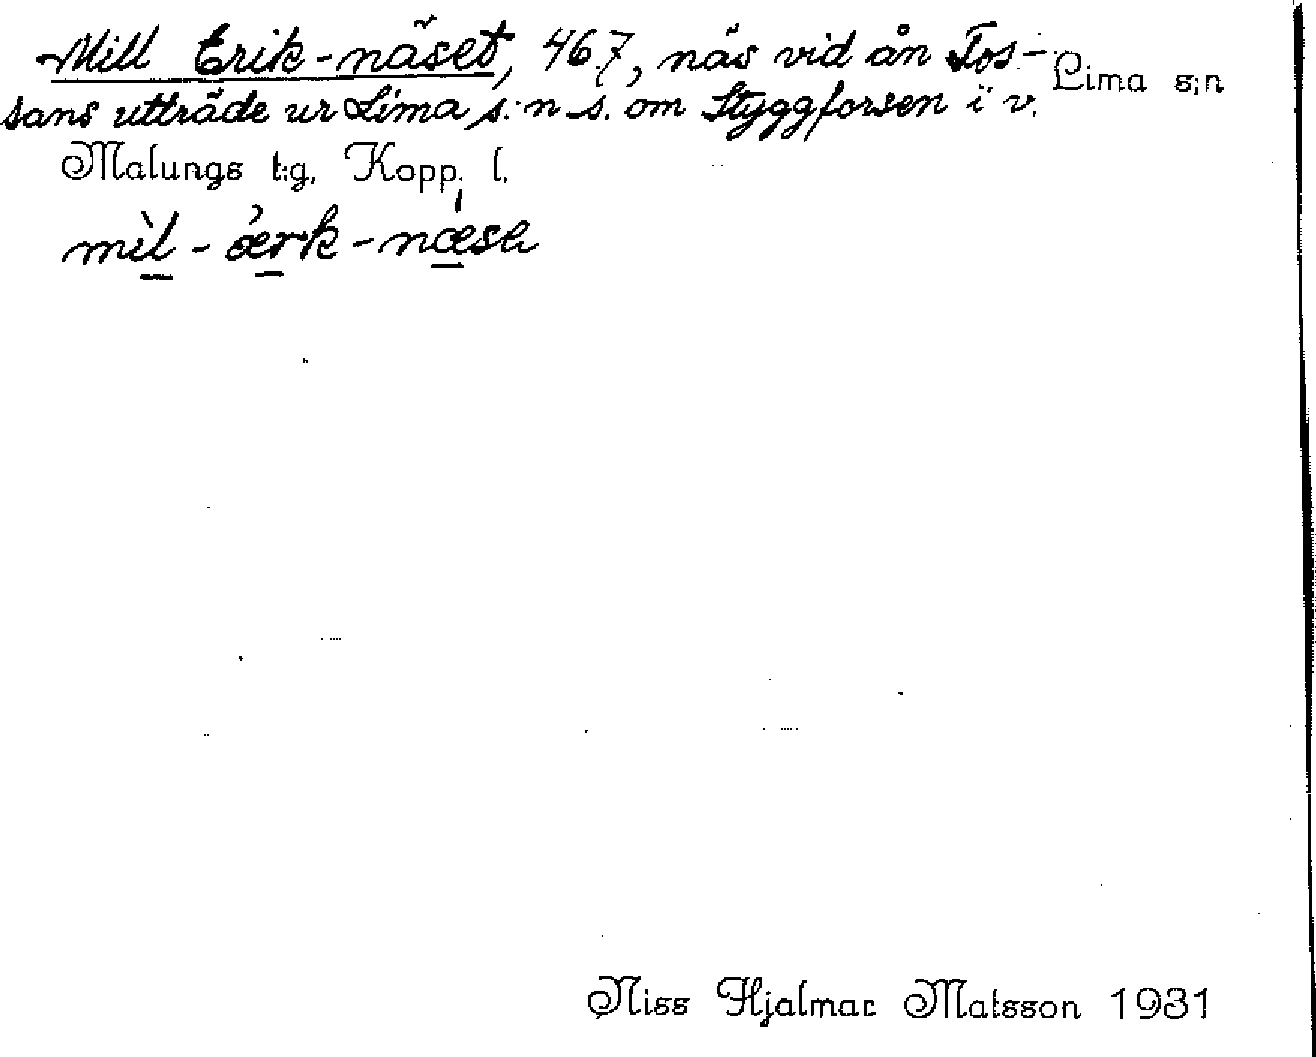 Mill Erik-näset, 46.7, näs vid ån Tos- Lima s:n
sans utträde ur Lima s:n s. om Styggforsen i v.
Malungs t:g, Kopp. l.
mìl-ærk-næsa
Niss Hjalmar Matsson 1931